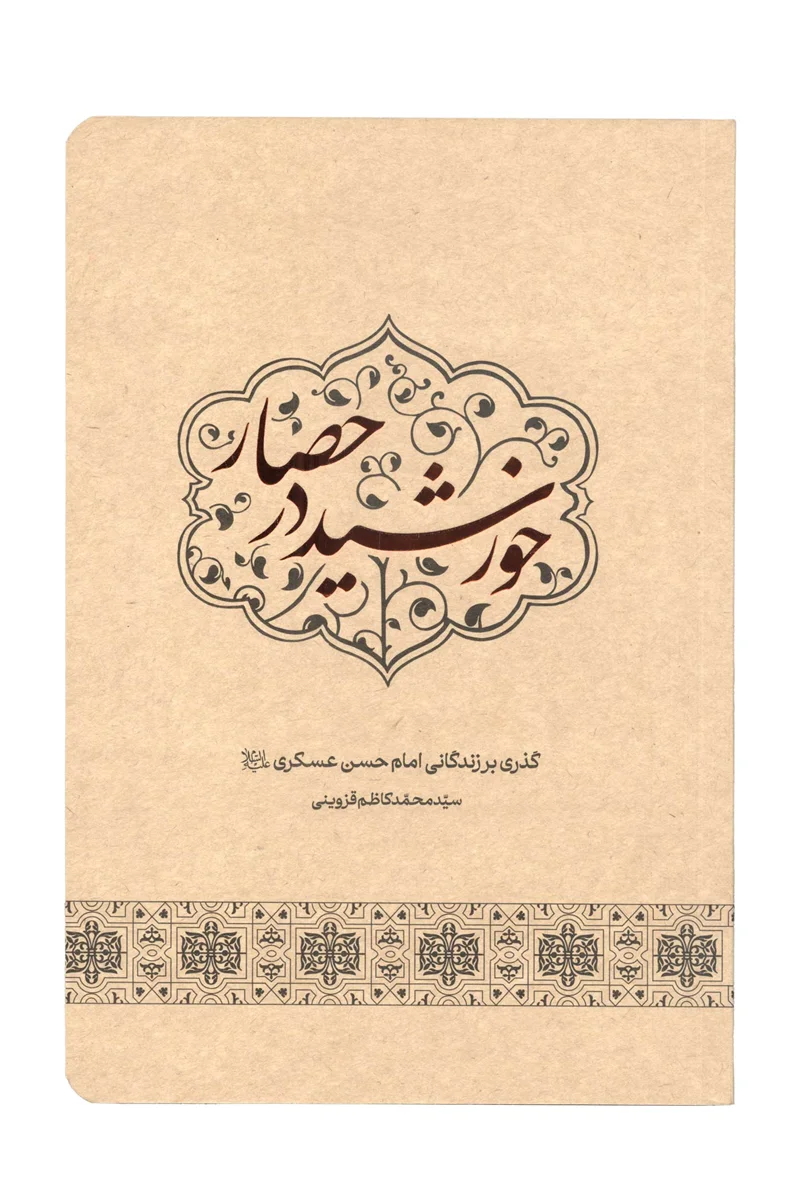 خورشید در حصار
گذری بر زندگانی امام حسن عسکری علیه‌السلام
سیّد محمّد کاظم قزوینی